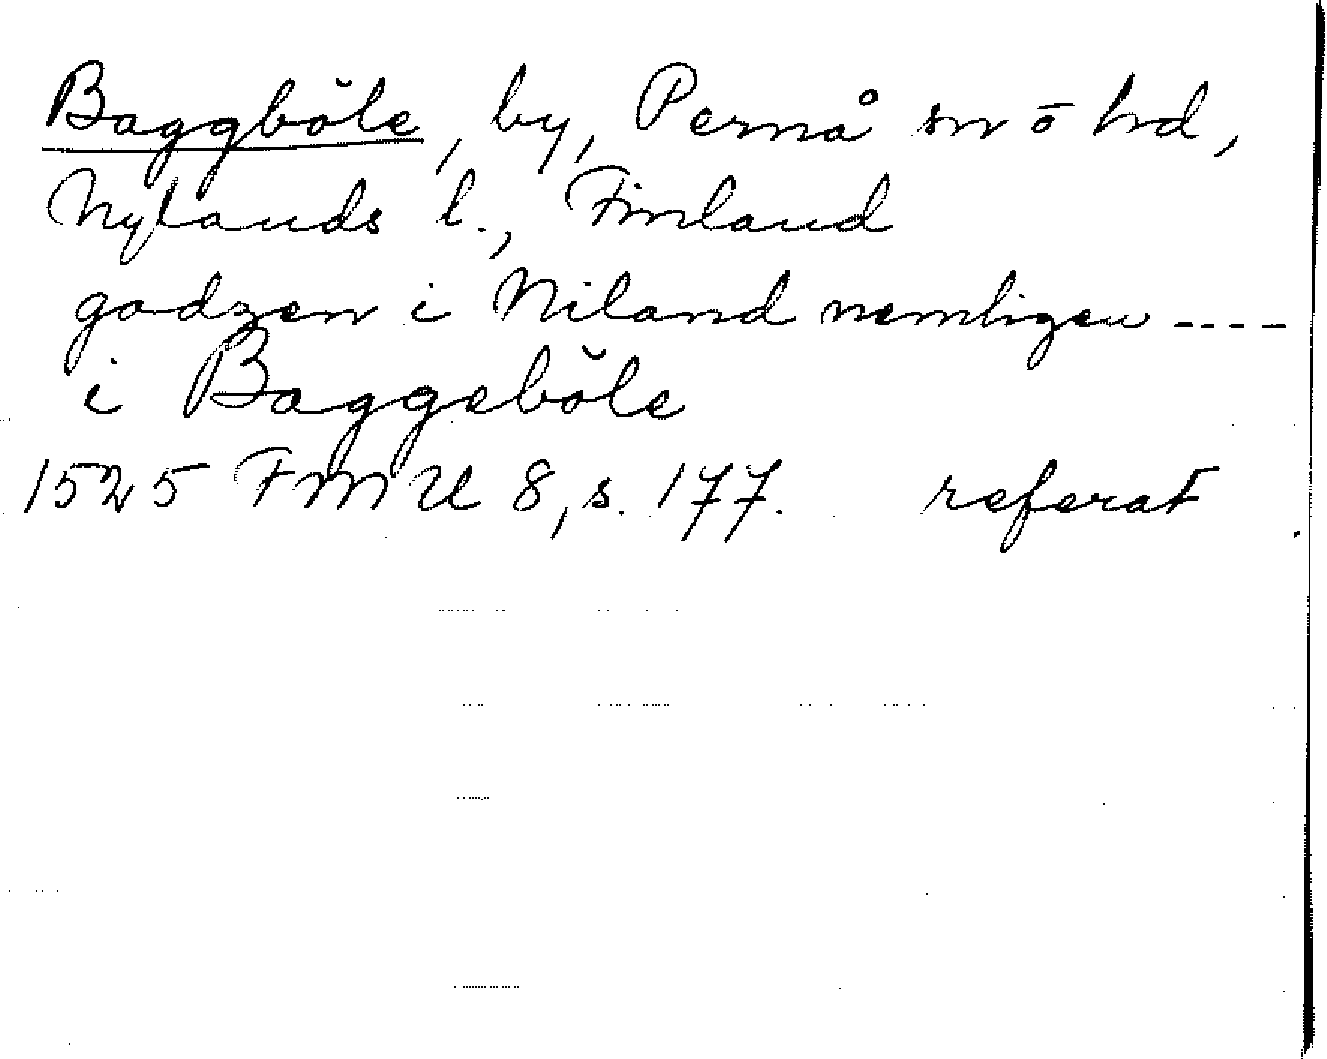 Baggböle, by, Pernå sn o hd,
Nylands l., Finland
godzen i Niland nemligen ----
i Baggeböle
1525 FMU 8, s. 177. referat